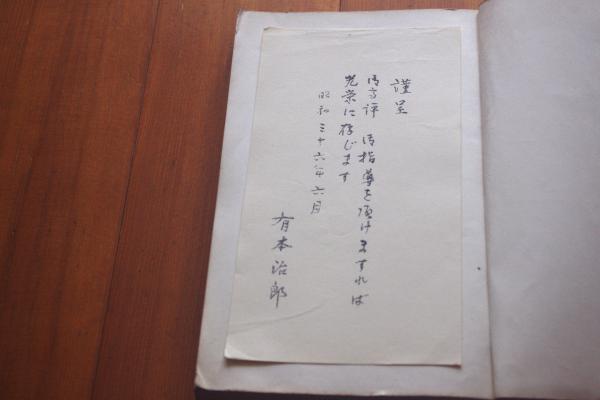 謹呈
御高評 御指導を頂けますれば
光栄に存じます
昭和三十六年六月
有本治郎